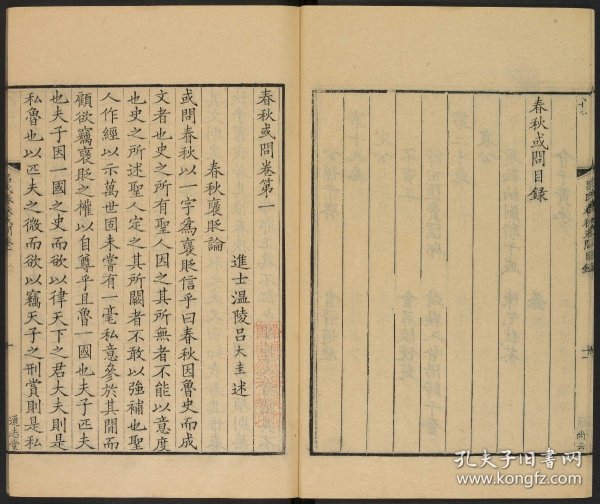 春秋或問目録
春秋或問卷第一
進士溫陵呂大圭述
春秋襃貶論
或問春秋以一字爲襃貶信乎曰春秋因魯史而成
文者也史之所有聖人因之其所無者不能以意度
也史之所述聖人定之其所闕者不敢以強補也聖
人作經以示萬世固未嘗有一毫私意參於其間而
顧欲竊襃貶之權以自尊乎且魯一國也夫子匹夫
也夫子因一國之史而欲以律天下之君大夫則是
私魯也以匹夫之微而欲以竊天子之刑賞則是私
通志堂
孔夫子旧书网
www.kongfz.com